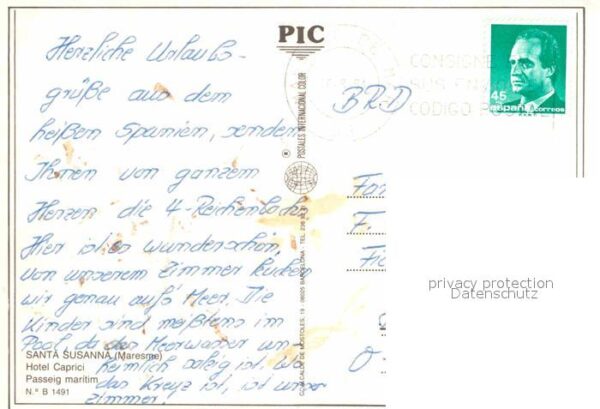 PIC
Herzliche Urlaubs-
grüße aus dem
heißen Spanien, senden
Ihnen von ganzem
Herzen die 4-Reichenbachs
Hier ist es wunderschön,
von unserem Zimmer kucken
wir genau auf's Meer. Die
Kinder sind meißtens im
Pool, da das Meerwasser un-
heimlich salzig ist, wo
das Kreuz ist, ist unser
Zimmer.
SANTA SUSANNA (Maresme)
Hotel Caprici
Passeig marítim
N.º B 1491
POSTALES INTERNACIONAL COLOR
08025 BARCELONA
CONSIGNE
CODIGO
45
españa
correos
BRD
Fa
F.
privacy protection
Datenschutz